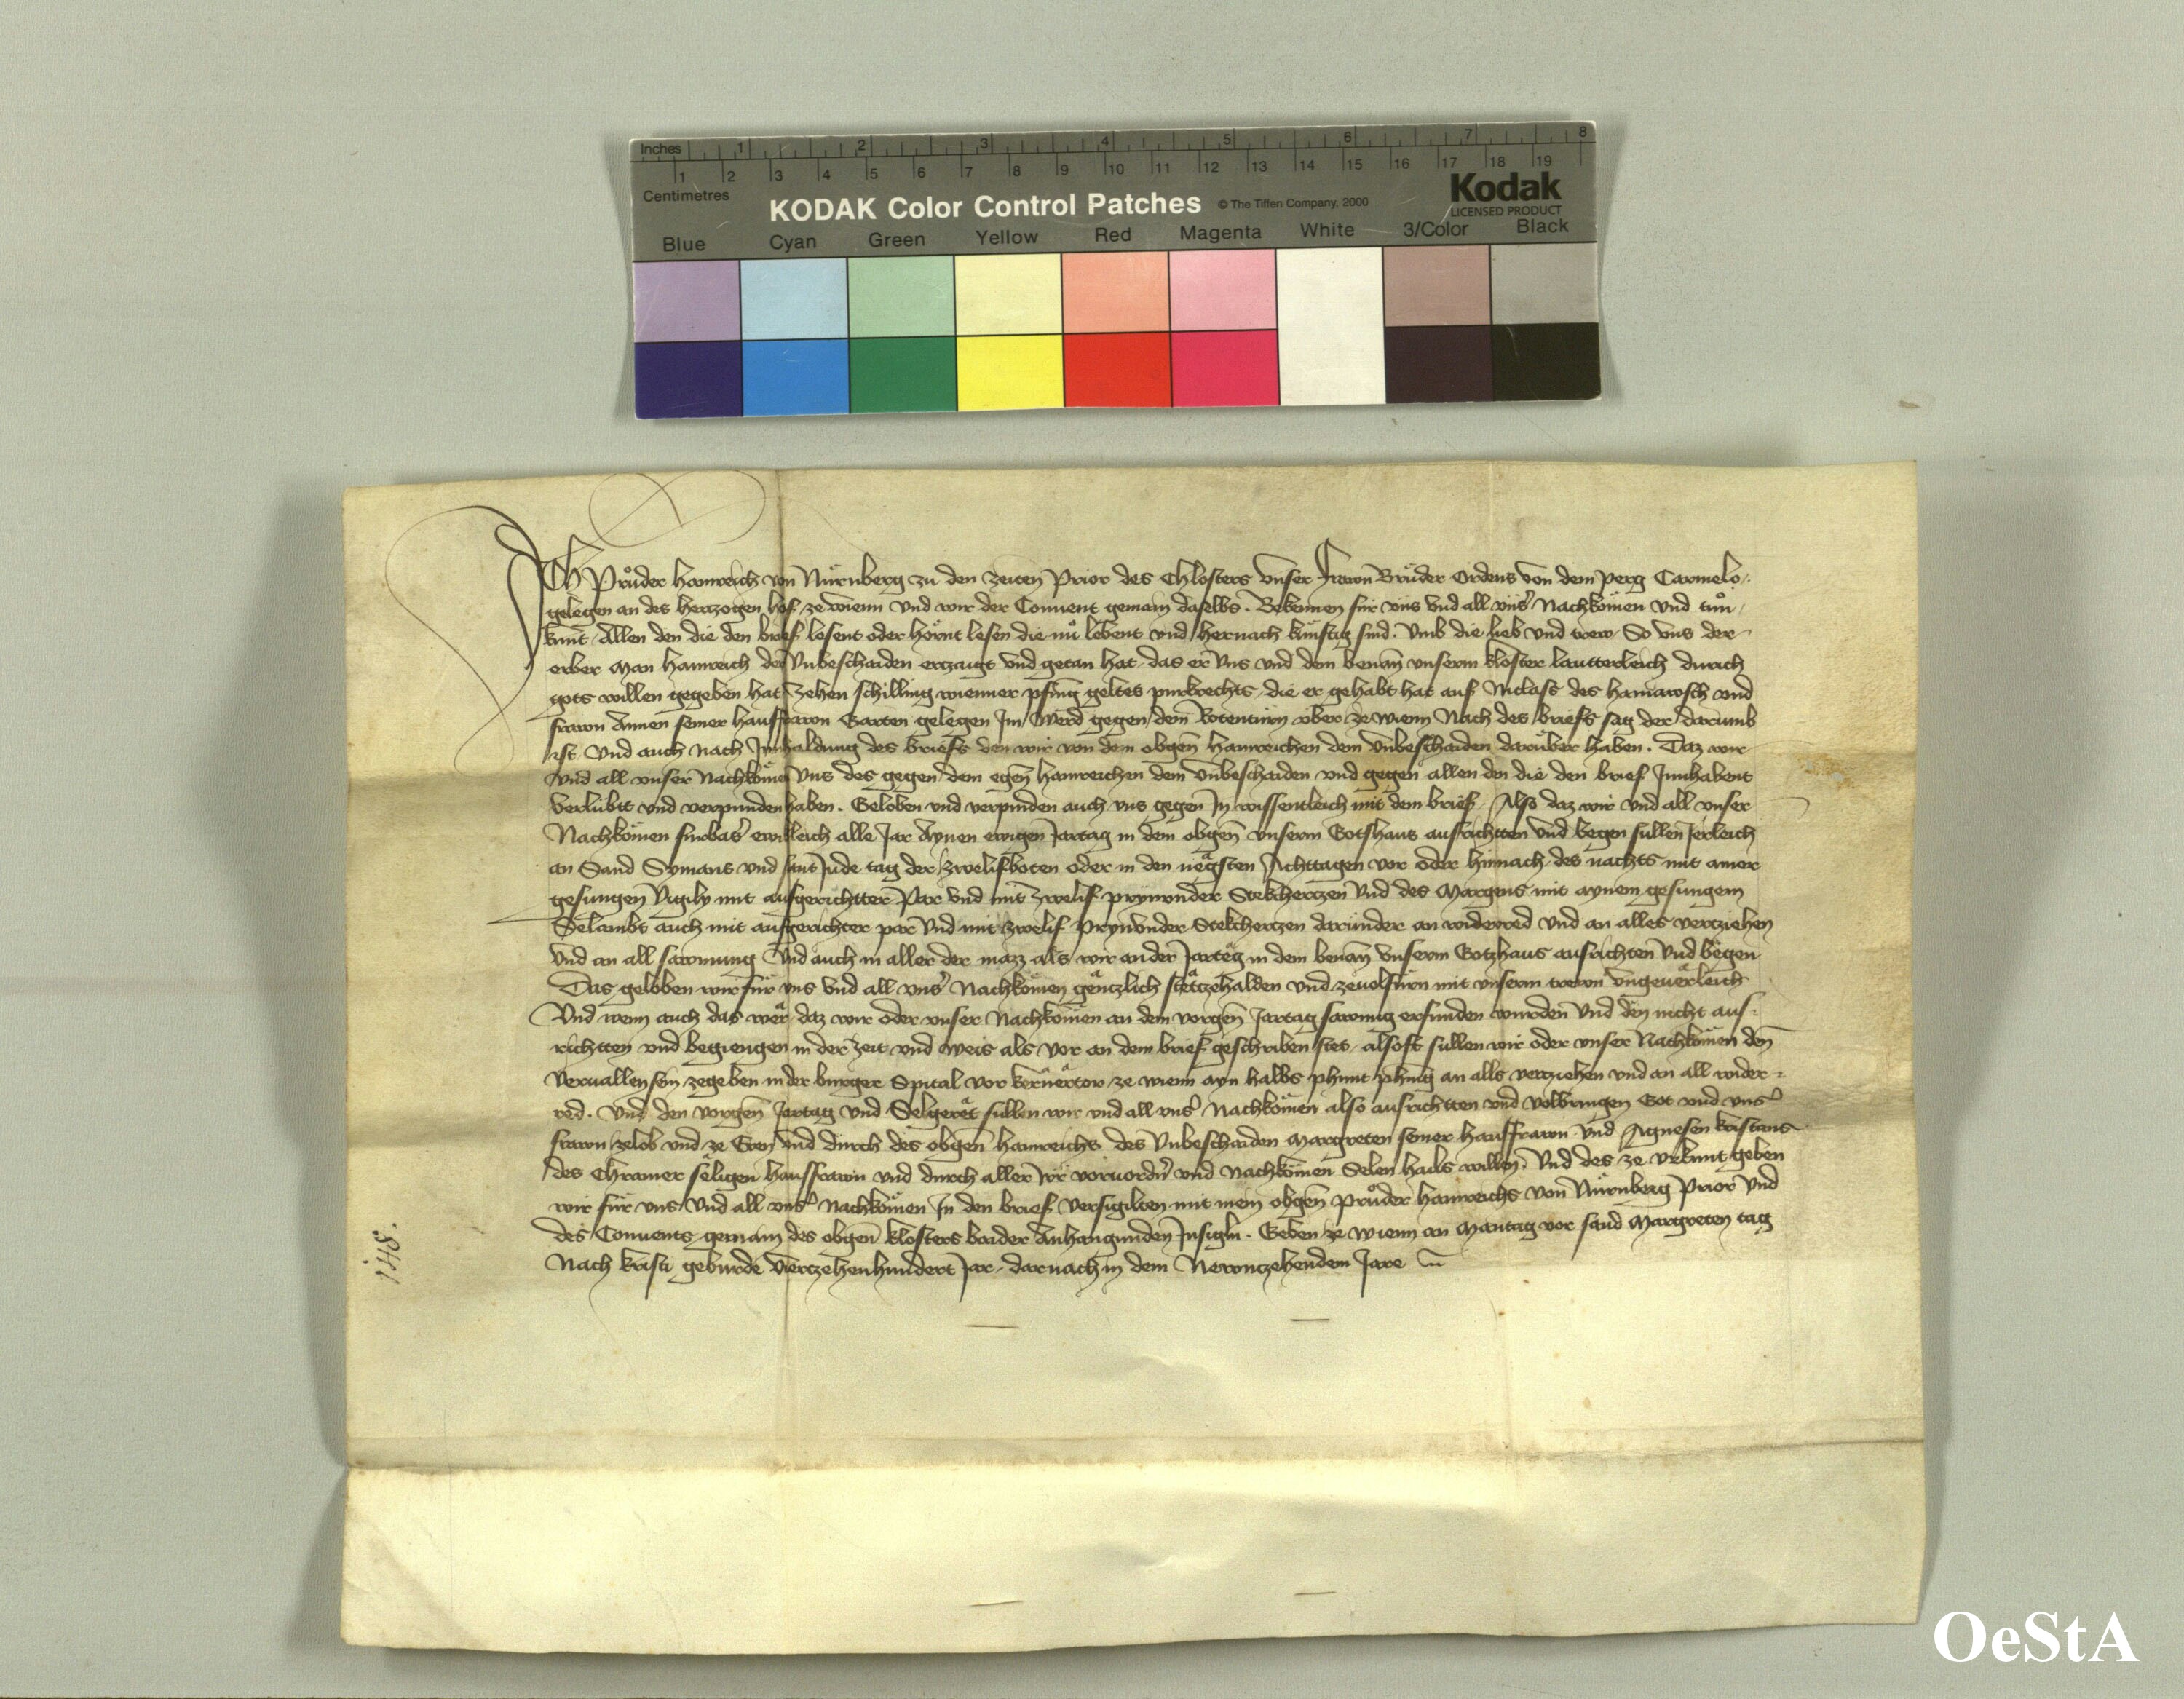 Inches 1 2 3 4 5 6 7 8
1 2 3 4 5 6 7 8 9 10 11 12 13 14 15 16 17 18 19
Centimetres
KODAK Color Control Patches © The Tiffen Company, 2000
Kodak
LICENSED PRODUCT
Blue Cyan Green Yellow Red Magenta White 3/Color Black
Ich Průder Hainreich von Nuͤrnberg zu den zeiten Prior des Chlosters vnser Frawn Bruͤder Ordens von dem Perg Carmelo
gelegen an des Herczogen hof ze wienn vnd wir der Conuent gemain daselbs. Bekennen fur vns vnd all vnser Nachkomen vnd tuͦn
kunt Allen den die den brief lesent oder hoͤrnt lesen die nuͦ lebent vnd hernach kunftig sind. Vmb die lieb vnd trew So vns der
erber Man Hainreich der Vnbeschaiden erczaigt vnd getan hat das er vns vnd dem benan̄ vnserm kloster lautterleich durich
gots willen gegeben hat zehen schilling wienner pfen̄g geltes purkrechts die er gehabt hat auf Niclass des Haniawsch vnd
frawn Annen seiner hausfrawn Garten gelegen Im Werd gegen dem Rotenturn vber ze wienn Nach des briefs sag der darumb
ist Vnd auch nach Innhaldung des briefs den wir von dem obgen̄ Hainreichen dem Vnbeschaiden daruͤber haben. Daz wir
vnd all vnser Nachkomen vns des gegen dem egen̄ Hainreichen dem Vnbeschaiden vnd gegen allen den die den brief Innhabent
verlubtt vnd verpunden haben. Geloben vnd verpinden auch vns gegen In wissentleich mit dem brief. Also daz wir vnd all vnser
Nachkomen furbas ewikleich alle Jar Aynen ewigen Jartag in dem obgen̄ vnserm Gotshaus ausrichtten vnd begen sullen Jerleich
an Sand Symans vnd sant Jude tag der zwelifboten oder in den negsten Achttagen vor oder hinnach des nachts mit ainer
gesungen Vigily mit aufgerichtter Par vnd mit zwelif prynnunder Stekcherczen vnd des Margens mit aynem gesungem
Selambt auch mit aufgerichter par vnd mit zwelif prynvnder Stekcherczen darunder an widerred vnd an alles vercziehen
vnd an all sawmung Vnd auch in aller der mazz als wir ander Jarteg in dem benan̄ vnserm Gotzhaus ausrichten vnd begen
Das geloben wir fuͤr vns vnd all vnser Nachkomen genczlich stet zehalden vnd zeuolfurn mit vnsern trewn vngeuerleich
Vnd wenn auch das wer daz wir oder vnser Nachkomen an dem vorgen̄ Jartag sawmig erfunden wurden vnd den nicht aus-
richtten vnd begiengen in der zeit vnd weis als vor an dem brief geschriben stet alsoft sullen wir oder vnser Nachkomen den̄
veruallen sein zegeben in der burger Spital vor kernertor ze wienn ayn halbs phunt phen̄g an alls verziehen vnd an all wider-
red. Vnd den vorgen̄ Jartag vnd Selgeret sullen wir vnd all vnser Nachkomen also ausrichtten vnd volbringen Got vnd vnser
frawn zelob vnd ze Eren vnd durch des obgen̄ Hainreichs des Vnbeschaiden Margreten seiner hausfrawn vnd Agnesen kristans
des Chramer seligen hausfrawn vnd durch aller ir vorvordern vnd Nachkomen Selen hails willen. Vnd des ze vrkunt geben
wir fuͤr vns vnd all vnser Nachkomen In den brief versigilten mit mein obgen̄ Pruͦder Hainreichs von Nuͤrnberg Prior vnd
des Conuents gemain des obgen̄ klosters baider Anhangunden Insigln. Geben ze wienn an Mantag vor sand Margreten tag
Nach kristi geburde vierczehenhundert Jar darnach in dem Newnczehendem Jare
OeStA